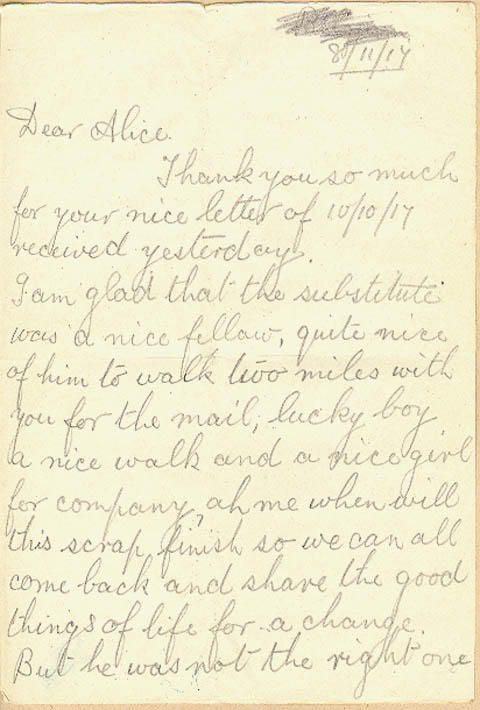 8/11/17
Dear Alice.
Thank you so much
for your nice letter of 10/10/17
received yesterday.
I am glad that the substitute
was a nice fellow, quite nice
of him to walk two miles with
you for the mail, lucky boy
a nice walk and a nice girl
for company, ah me when will
this scrap finish so we can all
come back and share the good
things of life for a change.
But he was not the right one